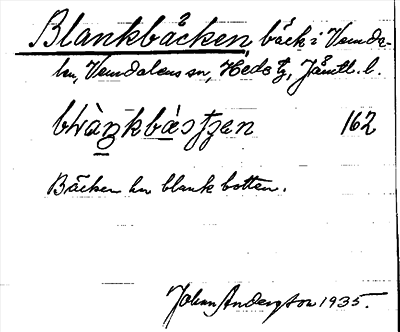 Blankbäcken, bäck i Vemda-
len, Vemdalens sn, Hede tg, Jämtl. l.
162
Bäcken har blank botten.
Johan Anderson 1935.